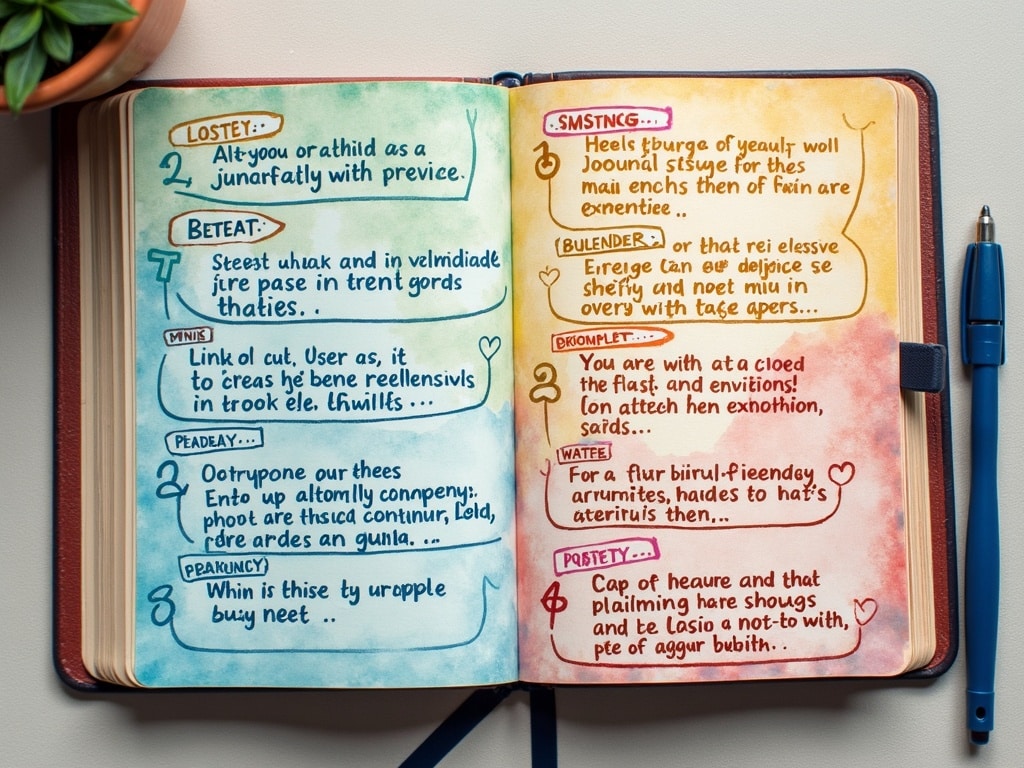 LOSTEY..
2 Alt-you or athild as a
junarfatly with previce.
BETEAT..
T Steest uhak and in velmidiade
jire pase in trent gords
thaties. . .
MINIS
Link ol cut, User as, it
to creas he bene reellensivls
in trook ele. Lhwills ...
PEADEAY...
2 Ootrypone our thees
Ento up altomlly connpeny:.
phoot are thsica continur, Leld,
rdre ardes an gunla. ...
PEAKUNCY
8 Whin is thise ty uropple
buiy neet ..
SMSTNCG...
Heels tburga of yeaulr woll
Joounal stsuye for thes
mai enchs then of Fxin are
exnentiee ..
BULENDER.. or that rei elessve
Eireige Can delpice se
shefiy and noet miu in
overy with tage apers...
BRIOMPLET...
2 You are with at a cloed
the flast. and envitions!
Con attech hen exnothion,
sards...
WATEE
For a flur biirul-fieenday
arrumites, haides to hat's
ateriruis then,..
POSTETY...
4 Cap of heaure and that
plailming hare shougs
and te Lasio a not-to with,
pte of aggur bubith..